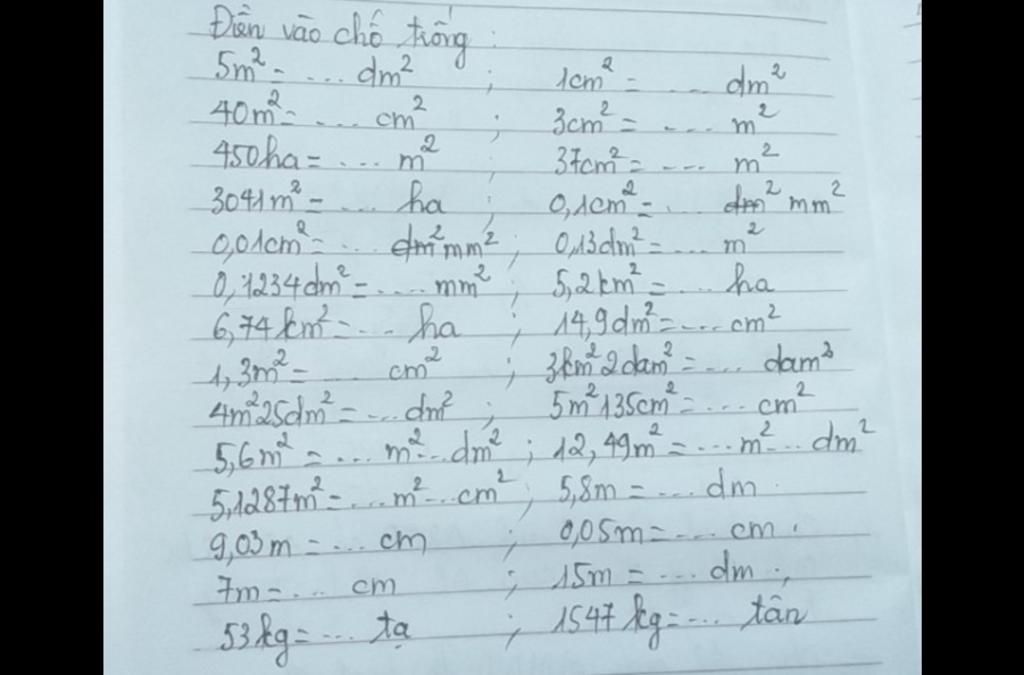 Điền vào chỗ trống :
5m² = ... dm² ; 1cm² = ... dm²
40m² = ... cm² ; 3cm² = ... m²
450ha = ... m² ; 37cm² = ... m²
3041m² = ... ha ; 0,1cm² = ... dm² mm²
0,01cm² = ... dm² mm² ; 0,13dm² = ... m²
0,1234dm² = .... mm² ; 5,2km² = ... ha
6,74km² = ... ha ; 14,9dm² = ... cm²
1,3m² = ... cm² ; 3km² 2dam² = ... dam²
4m² 25dm² = ... dm² ; 5m² 135cm² = ... cm²
5,6m² = ... m² ... dm² ; 12,49m² = ... m² ... dm²
5,1287m² = ... m² ... cm² ; 5,8m = ... dm
9,03m = ... cm ; 0,05m = ... cm .
7m = ... cm ; 15m = ... dm .,
53kg = ... tạ ; 1547kg = ... tấn